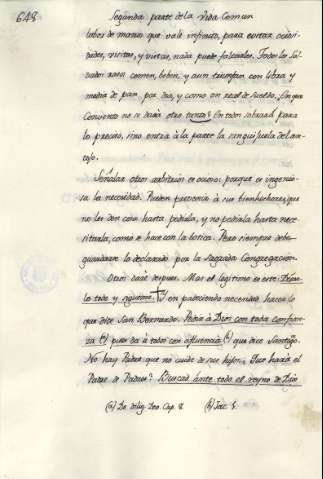 648
Segunda parte de la Vida Comun
labor de manos que vale infinito, para evitar ociosi-
dades, visitas, y vistas, nada puede faltarles. Todos los Sol-
dados asisi comen, beben, y aun triunfan con libra y
media de pan, por dia, y como un real de sueldo. En que
Convento no se daria otro tanto? Sin todo sobrará para
lo preciso, sino entra à la parte la sanguijuela del an-
tojo.
Señalar otros arbitrios es ocioso: porque es ingenio-
sa la necesidad. Pueden prevenir à sus bienhechores, que
no les den cosa hasta pedirla, y no pedirla hasta nece-
sitarla, como se hace con la botica. Pero siempre debe
guardarse lo declarado por la Sagrada Congregacion.
Otros daré despues. Mas el legitimo es este: Dejar-
lo todo y seguirme. Y en padeciendo necesidad hacer lo
que dice San Bernardo. Pedir à Dios con toda confian-
za (a) pues da à todos con afluencia (b) que dice Santiago.
No hay Padre que no cuide de sus hijos. Que haria el
Padre de Padres? Buscad ante todo el reyno de Dios
(a) De dilig. Deo. Cap. 8. (b) Jac. 1.